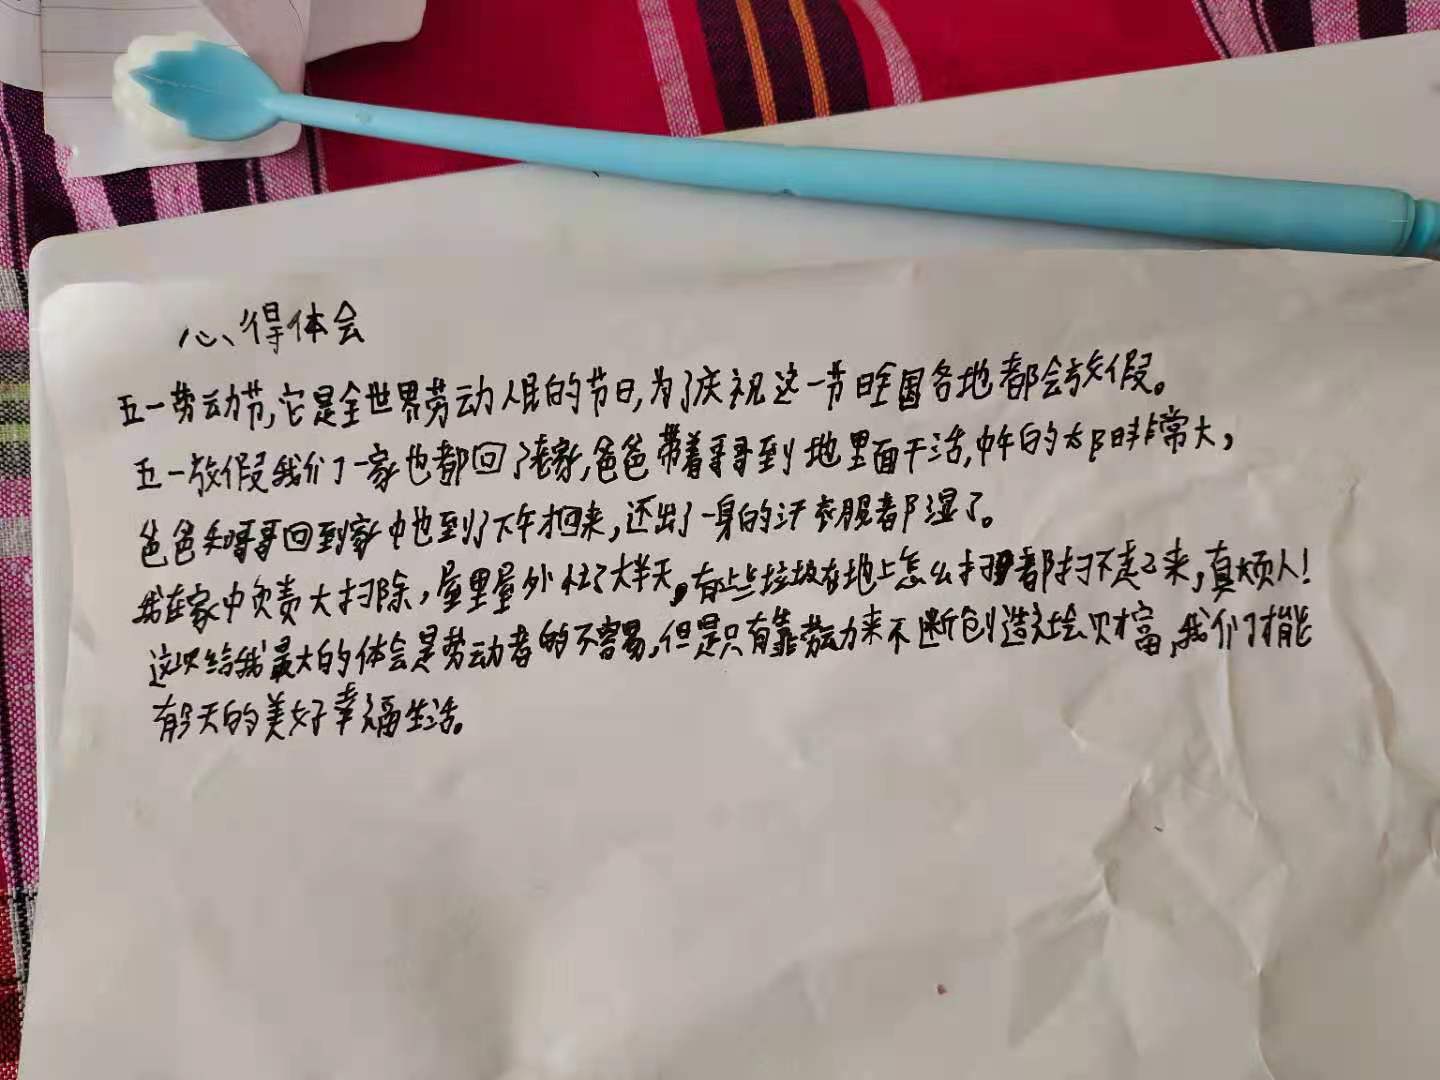 心得体会
五一劳动节,它是全世界劳动人民的节日,为了庆祝这一节日全国各地都会放假。
五一放假我们一家也都回了老家,爸爸带着哥哥到地里面干活,中午的太阳非常大,
爸爸和哥哥回到家中也到了下午才回来,还出了一身的汗衣服都湿了。
我在家中负责大扫除,屋里屋外忙了大半天。有些垃圾在地上怎么扫都扫不起来,真烦人!
这次给我最大的体会是劳动者的不容易,但是只有靠劳动力来不断创造社会财富,我们才能
有今天的美好幸福生活。